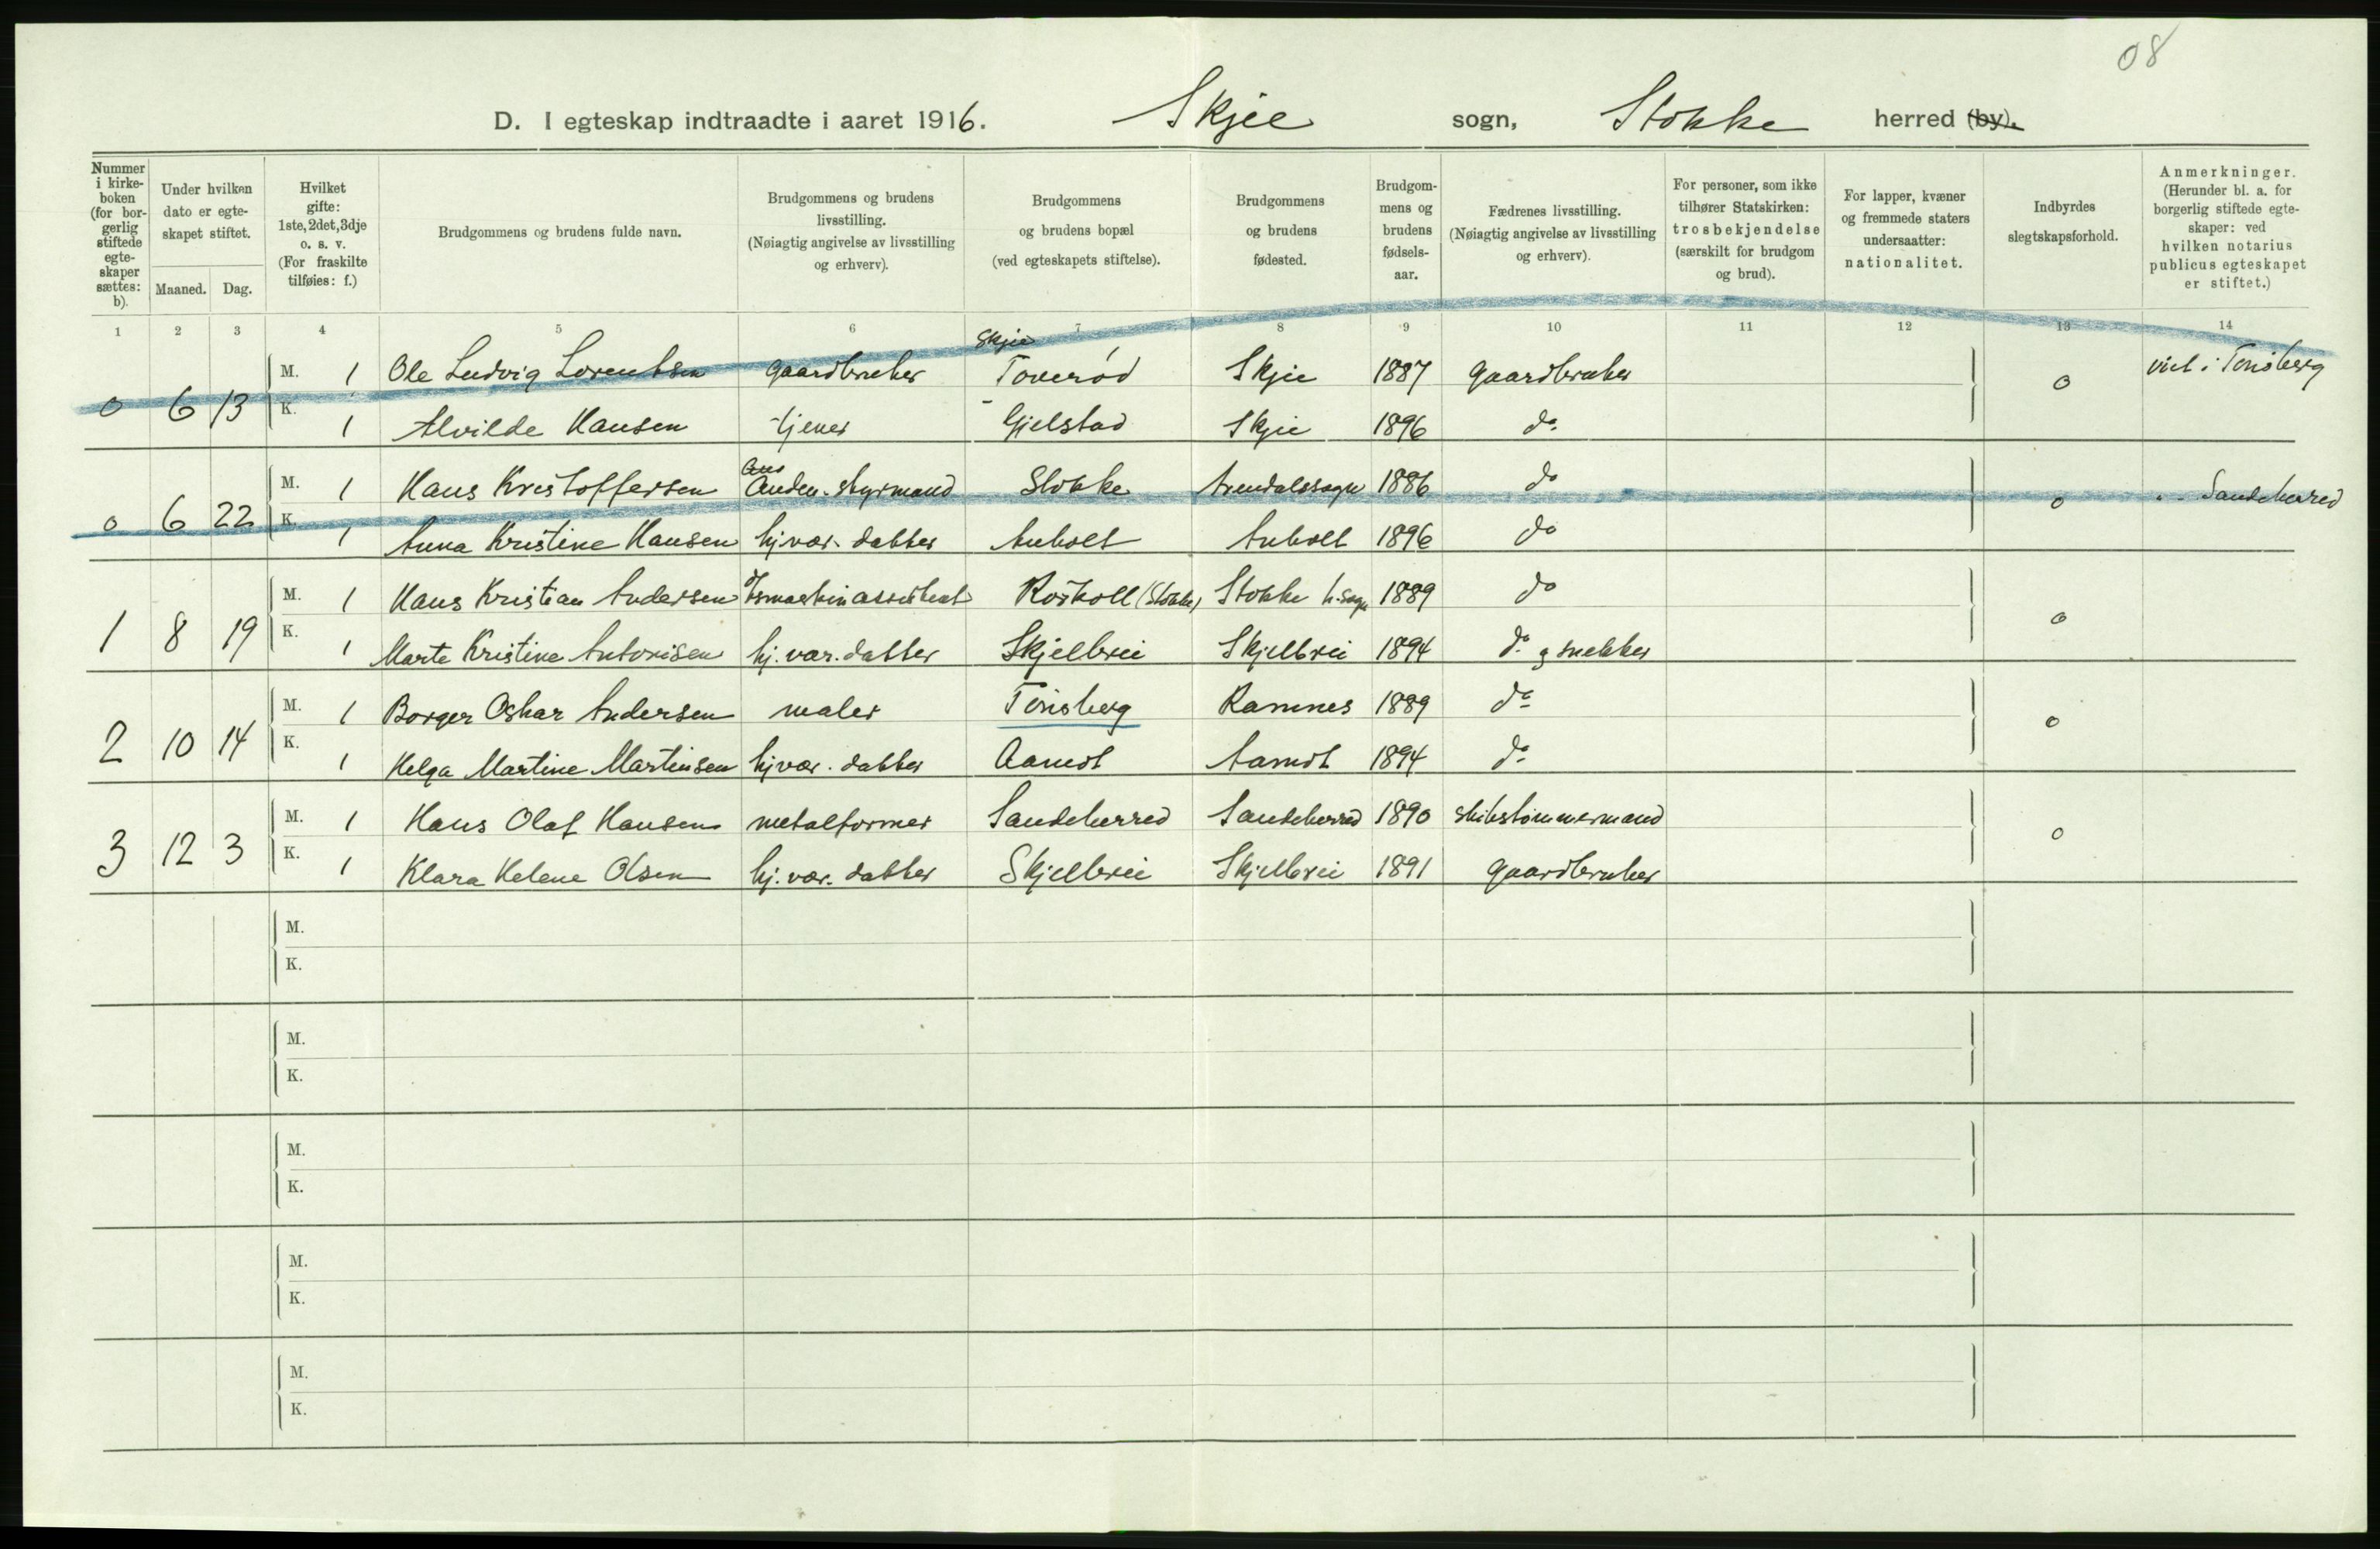 08
D. I egteskap indtraadte i aaret 1916. Skjee sogn, Stokke herred (by).
Nummer i kirkeboken (for borgerlig stiftede egteskaper sættes: b).
Under hvilken dato er egteskapet stiftet.
Maaned. Dag.
Hvilket gifte: 1ste, 2det, 3dje o. s. v. (For fraskilte tilføies: f.)
Brudgommens og brudens fulde navn.
Brudgommens og brudens livsstilling. (Nøiagtig angivelse av livsstilling og erhverv).
Brudgommens og brudens bopæl (ved egteskapets stiftelse).
Brudgommens og brudens fødested.
Brudgommens og brudens fødselsaar.
Fædrenes livsstilling. (Nøiagtig angivelse av livsstilling og erhverv).
For personer, som ikke tilhører Statskirken: trosbekjendelse (særskilt for brudgom og brud).
For lapper, kvæner og fremmede staters undersaatter: nationalitet.
Indbyrdes slegtskapsforhold.
Anmerkninger. (Herunder bl. a. for borgerlig stiftede egteskaper: ved hvilken notarius publicus egteskapet er stiftet.)
1 2 3 4 5 6 7 8 9 10 11 12 13 14
Skjee
0 6 13 M. 1 Ole Ludvig Lorentsen gaardbruker Toverød Skjee 1887 gaardbruker 0 viet i Tønsberg
K. 1 Alvilde Hansen tjener Gjelstad Skjee 1896 do
0 6 22 M. 1 Hans Kristoffersen Anden-styrmand Stokke Arendalssogn 1886 do 0 " - Sandeherred
K. 1 Anna Kristine Hansen hj.vær. datter Anholt Anholt 1896 do
1 8 19 M. 1 Hans Kristian Andersen maskinassistent (Stokke) Stokke h.sogn 1889 do 0
K. 1 Marte Kristine Antonisen hj. vær. datter Skjelbrei Skjelbrei 1894 do g snekker
2 10 14 M. 1 Borger Oskar Andersen maler Tønsberg Ramnes 1889 do 0
K. 1 Helga Martine Martinsen hj.vær. datter Aamot Aamot 1894 do
3 12 3 M. 1 Hans Olaf Hansen metalformer Sandeherred Sandeherred 1890 skibstømmermand 0
K. 1 Klara Helene Olsen hj. vær. datter Skjelbrei Skjelbrei 1891 gaardbruker
M.
K.
M.
K.
M.
K.
M.
K.
M.
K.